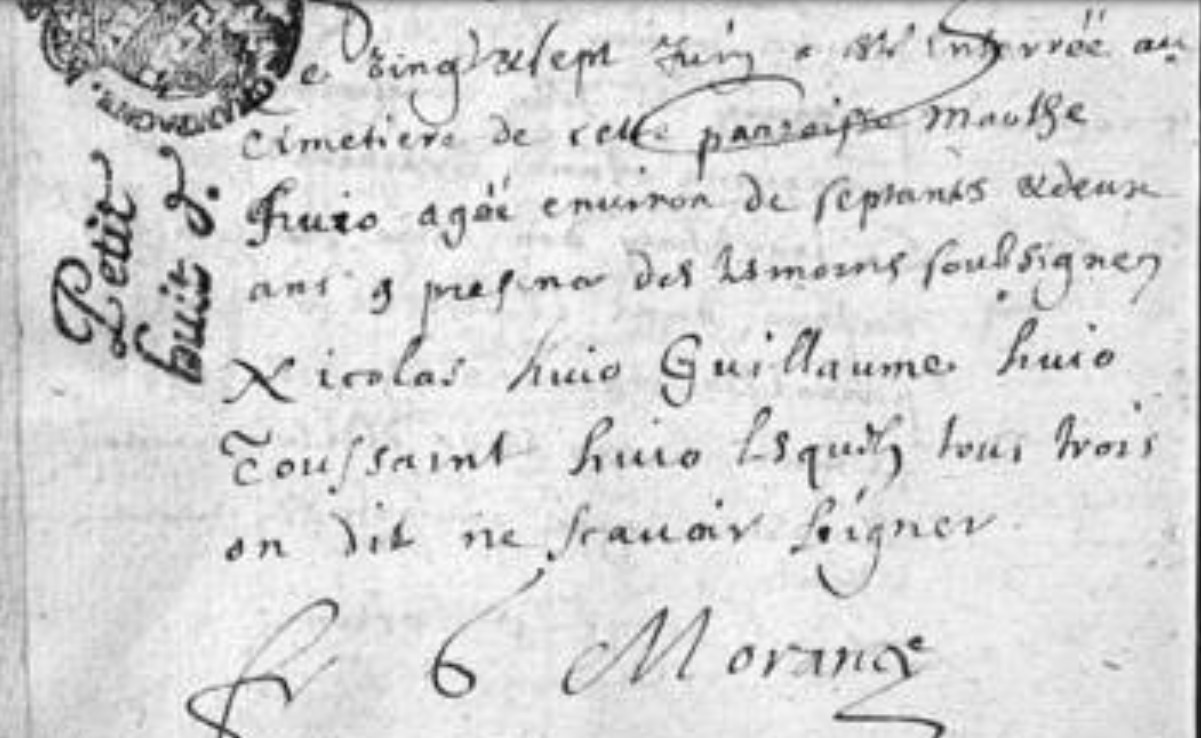 Le vingt & sept Juin a este interrée au
cimetiere de cette parroisse Mathe
huio agéé environ de septantes & deux
ans & presence des tesmoins soubsignez
Nicolas huio Guillaume huio
Toussaint huio lesquels tous trois
on dit ne scavoir seigner
Morange
Petit
huit d.